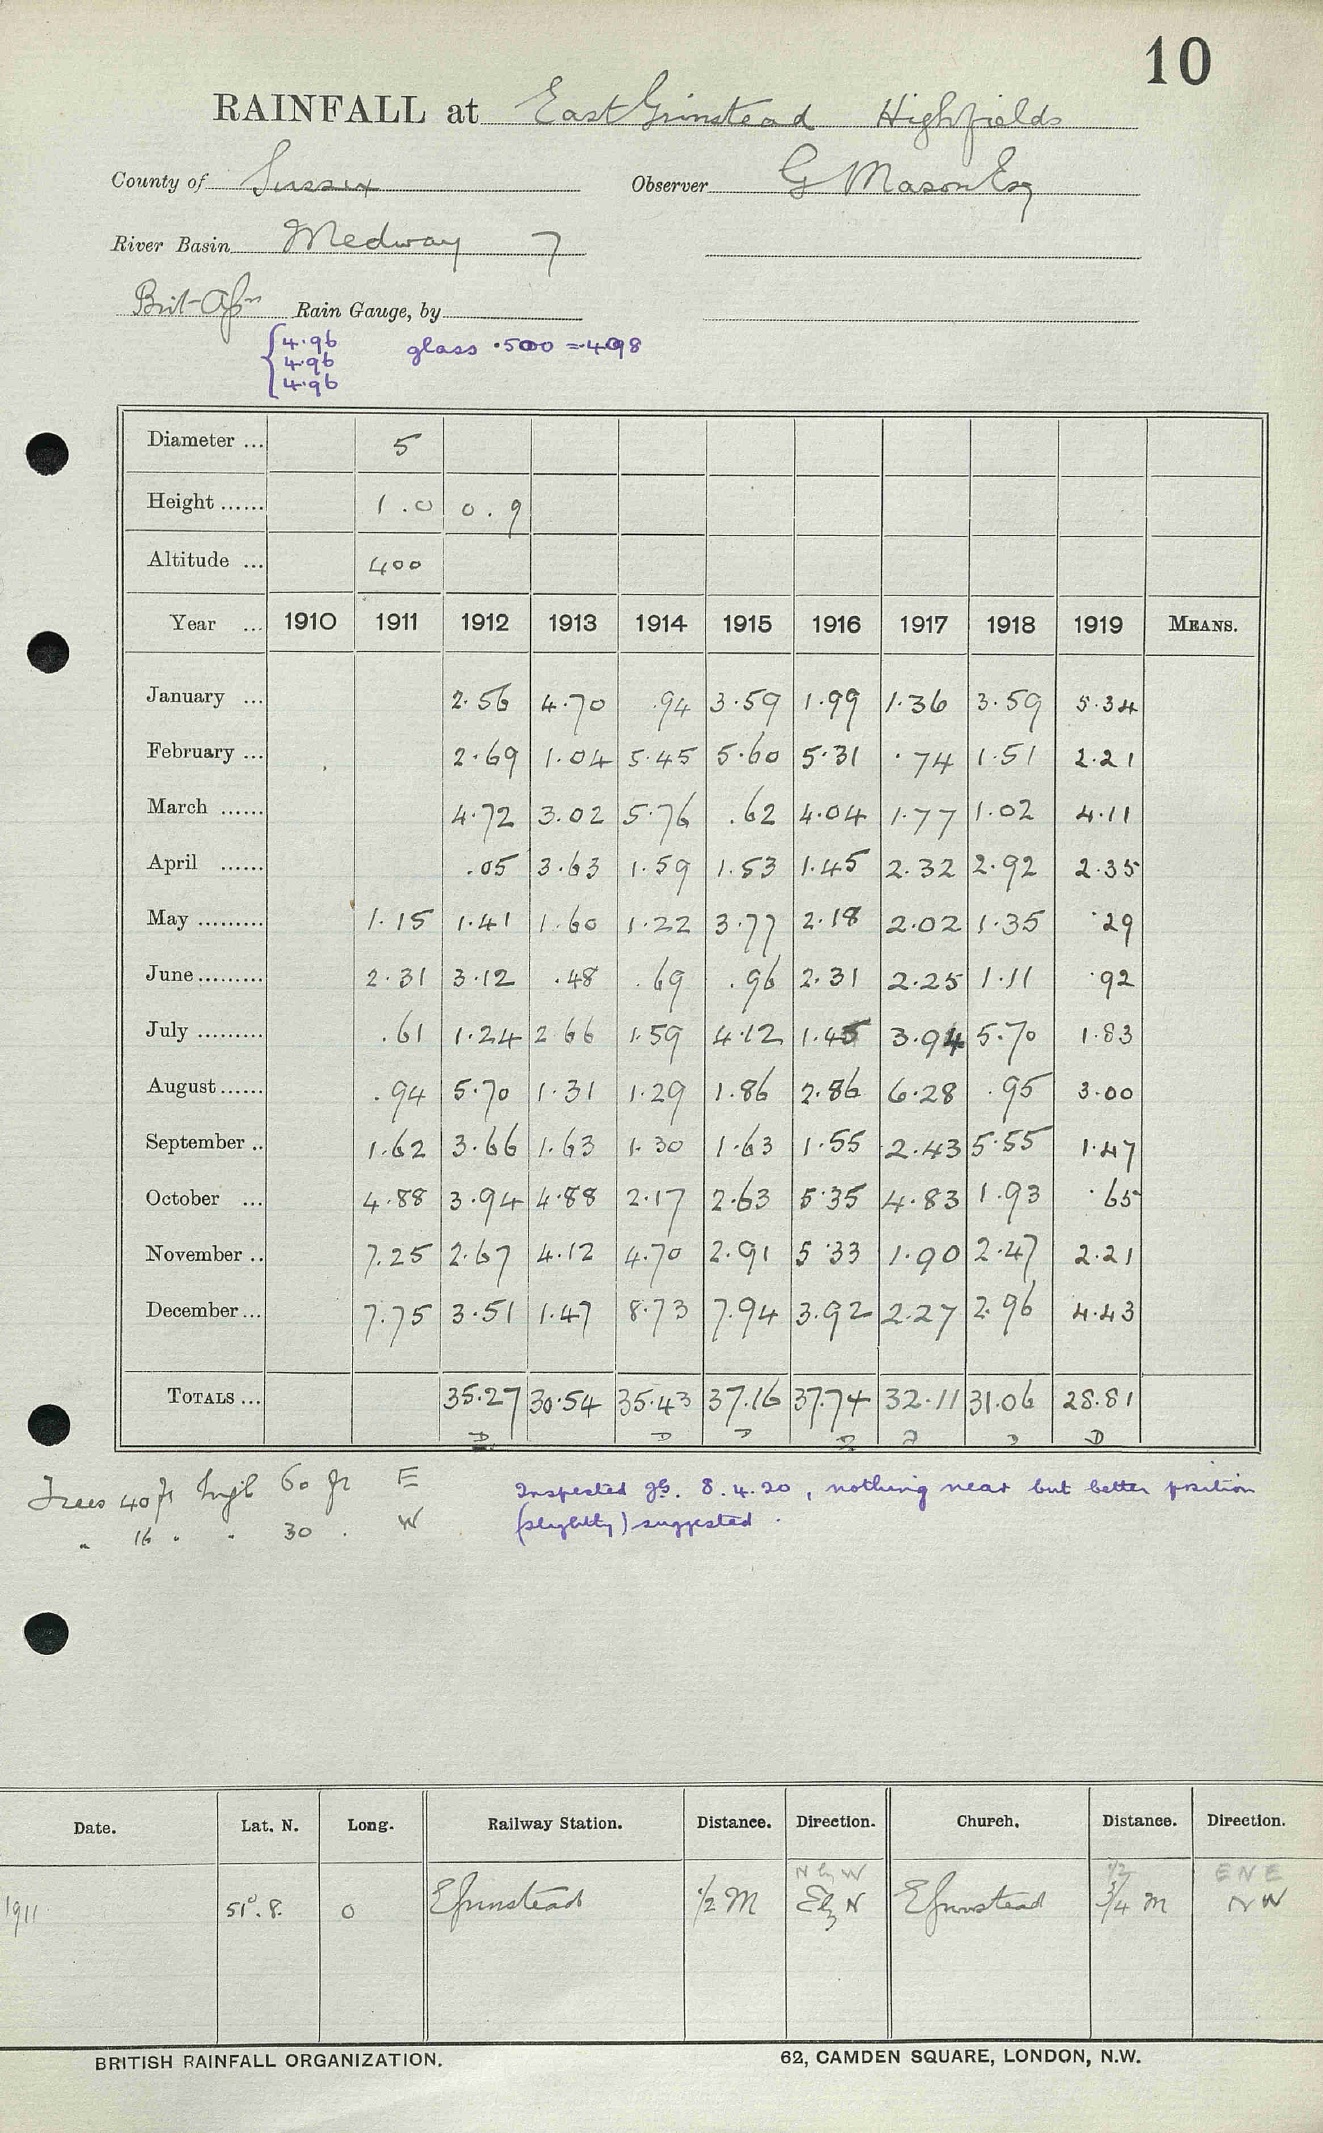 10
RAINFALL at East Grinstead Highfields
County of Sussex Observer G Mason Esq
River Basin Medway 7
Brit-Assn Rain Gauge, by
4.96
4.96 glass .500 = 498
4.96
Diameter ... 5
Height ...... 1.0 0.9
Altitude ... 400
Year ... 1910 1911 1912 1913 1914 1915 1916 1917 1918 1919 MEANS.
January ... 2.56 4.70 .94 3.59 1.99 1.36 3.59 5.34
February ... 2.69 1.04 5.45 5.60 5.31 .74 1.51 2.21
March ...... 4.72 3.02 5.76 .62 4.04 1.77 1.02 4.11
April ...... .05 3.63 1.59 1.53 1.45 2.32 2.92 2.35
May ......... 1.15 1.41 1.60 1.22 3.77 2.18 2.02 1.35 .29
June ......... 2.31 3.12 .48 .69 .96 2.31 2.25 1.11 .92
July ......... .61 1.24 2.66 1.59 4.12 1.45 3.94 5.70 1.83
August ...... .94 5.70 1.31 1.29 1.86 2.86 6.28 .95 3.00
September .. 1.62 3.66 1.63 1.30 1.63 1.55 2.43 5.55 1.47
October ... 4.88 3.94 4.88 2.17 2.63 5.35 4.83 1.93 .65
November .. 7.25 2.67 4.12 4.70 2.91 5.33 1.90 2.47 2.21
December ... 7.75 3.51 1.47 8.73 7.94 3.92 2.27 2.96 4.43
TOTALS ... 35.27 30.54 35.43 37.16 37.74 32.11 31.06 28.81
D D D D D D D
Trees 40 ft high 60 ft E
" 16 " " 30 . W
Inspected 8.4.20, nothing near but better position
(slightly) suggested.
Date. Lat. N. Long. Railway Station. Distance. Direction. Church. Distance. Direction.
N by W 1/2 ENE
1911 51°.8. 0 E Grinstead 1/2 M E by N E Grinstead 3/4 M NW
BRITISH RAINFALL ORGANIZATION. 62, CAMDEN SQUARE, LONDON, N.W.